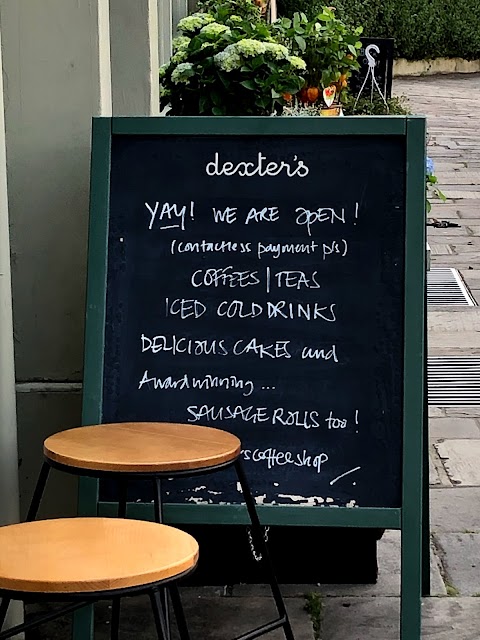 dexter's
YAY! WE ARE OPEN!
(contactless payment pls)
COFFEES | TEAS
ICED COLD DRINKS
DELICIOUS CAKES and
Award winning ...
SAUSAGE ROLLS too!
rscoffeeshop